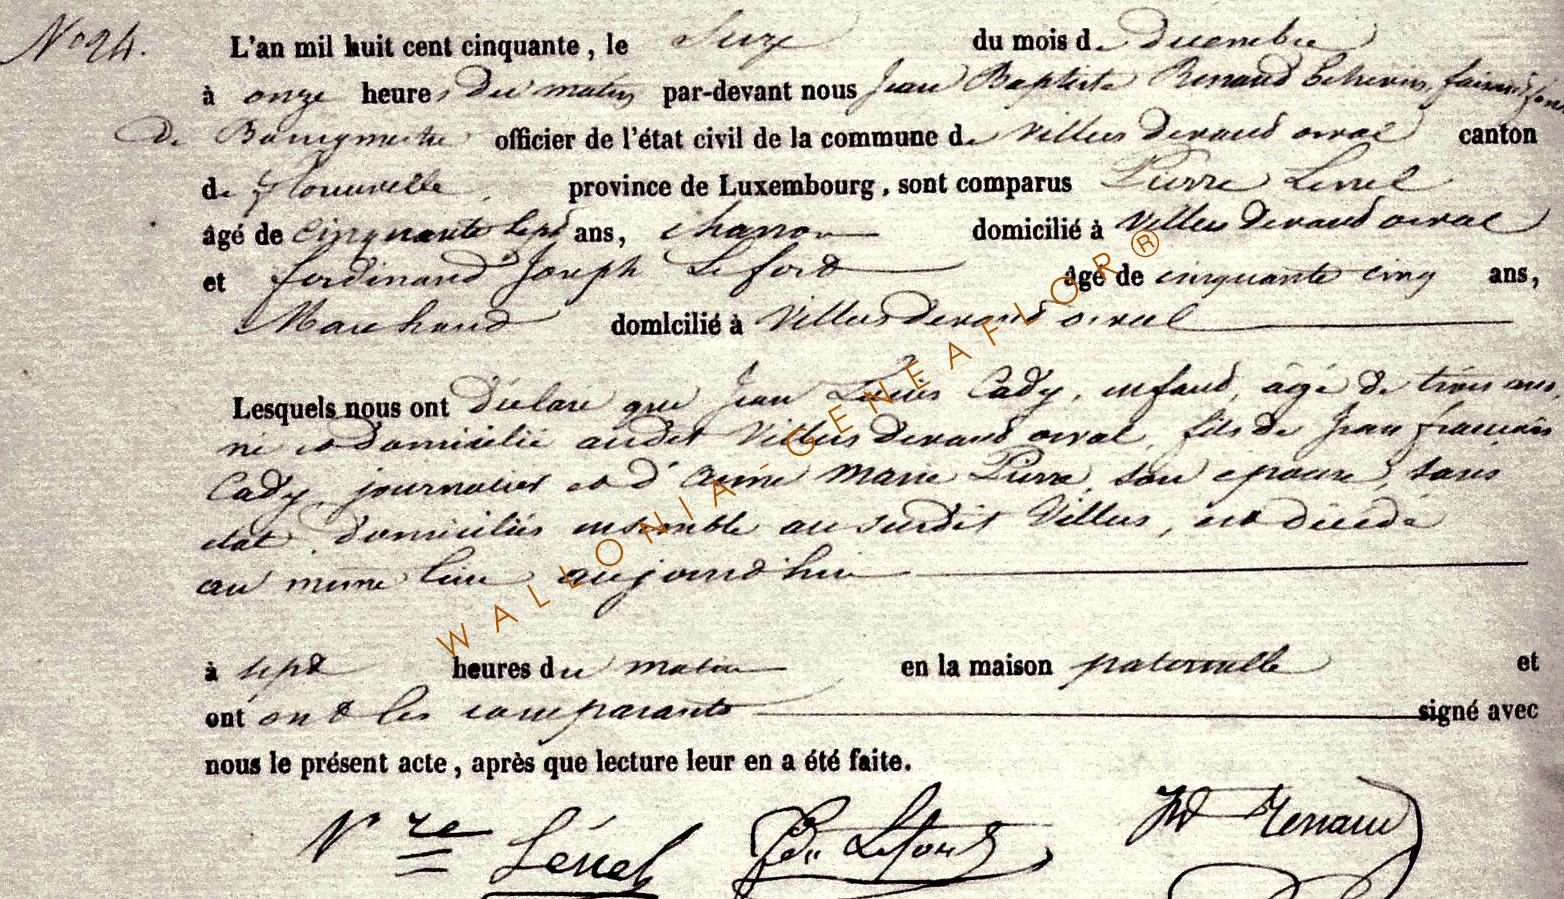 N° 24. L'an mil huit cent cinquante, le seize du mois de decembre
à onze heures du matin par-devant nous Jean Baptiste Renaud Echevin, faisant
de Bourgmestre officier de l'état civil de la commune de Villers devant orval canton
de florenville province de Luxembourg, sont comparus Pierre Lenel
âgé de cinquante sept ans, charron domicilié à Villers devant orval
et ferdinand Joseph Lefort âgé de cinquante cinq ans,
Marchand domicilié à Villers Devant orval
Lesquels nous ont déclaré que Jean Louis Cady, enfant, âgé de trois ans,
né et domicilié audit Villers devant orval, fils de Jean francois
Cady journalier et d'anne marie Pierre, son epouse, sans
état, domiciliés ensemble au susdit Villers, est décédé
au même lieu aujourdhui
à sept heures du matin en la maison paternelle et
ont ont les comparants signé avec
nous le présent acte, après que lecture leur en a été faite.
Lefort Renaud
WALLONIA-GENEAFLOR®